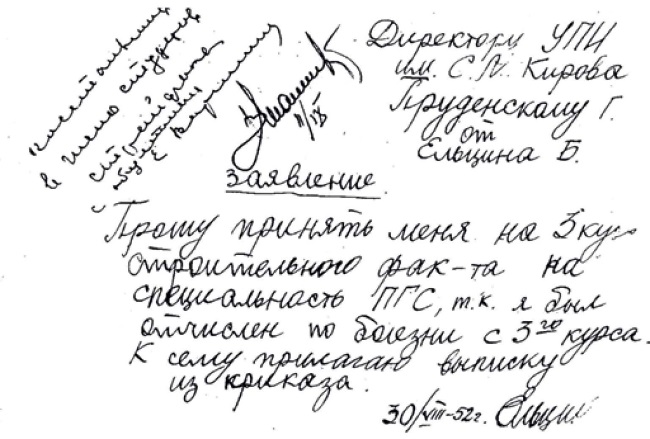 Директору УПИ
им. С.М. Кирова
Пруденскому Г.
от
Ельцина Б.
Заявление
Прошу принять меня на 3 кур
строительного фак-та на
специальность ПГС, т.к. я был
отчислен по боезни с 3го курса.
К сему прилагаю выписку
из криказа.
30/VIII-52г. Ельцин
в число студентов